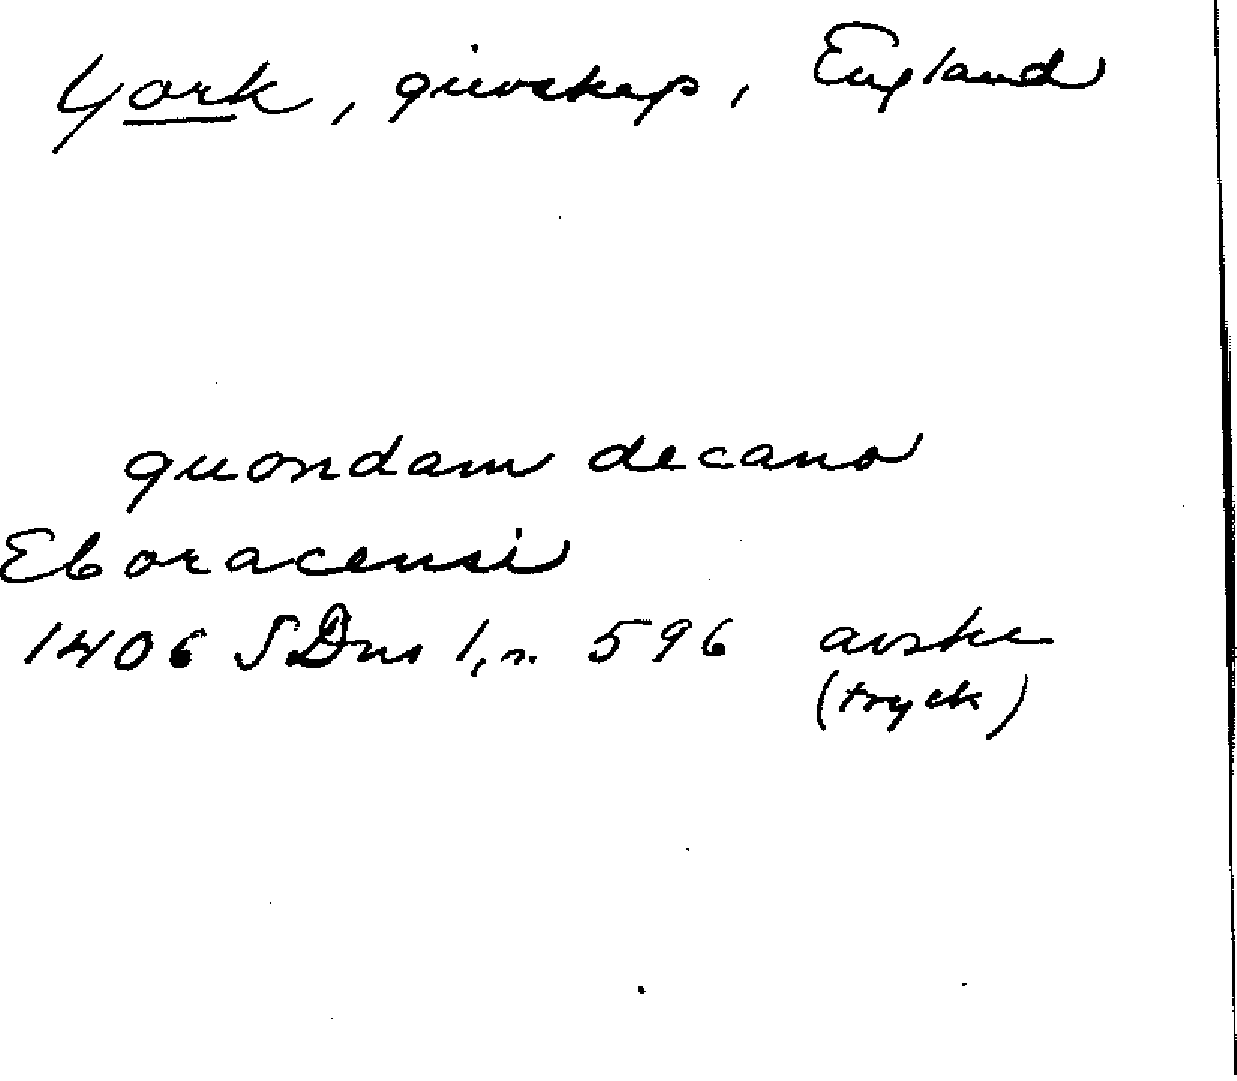 York, grevskap, England
quondam decano
Eboracensi
1406 SDns 1, n. 596 avskr
(tryck)